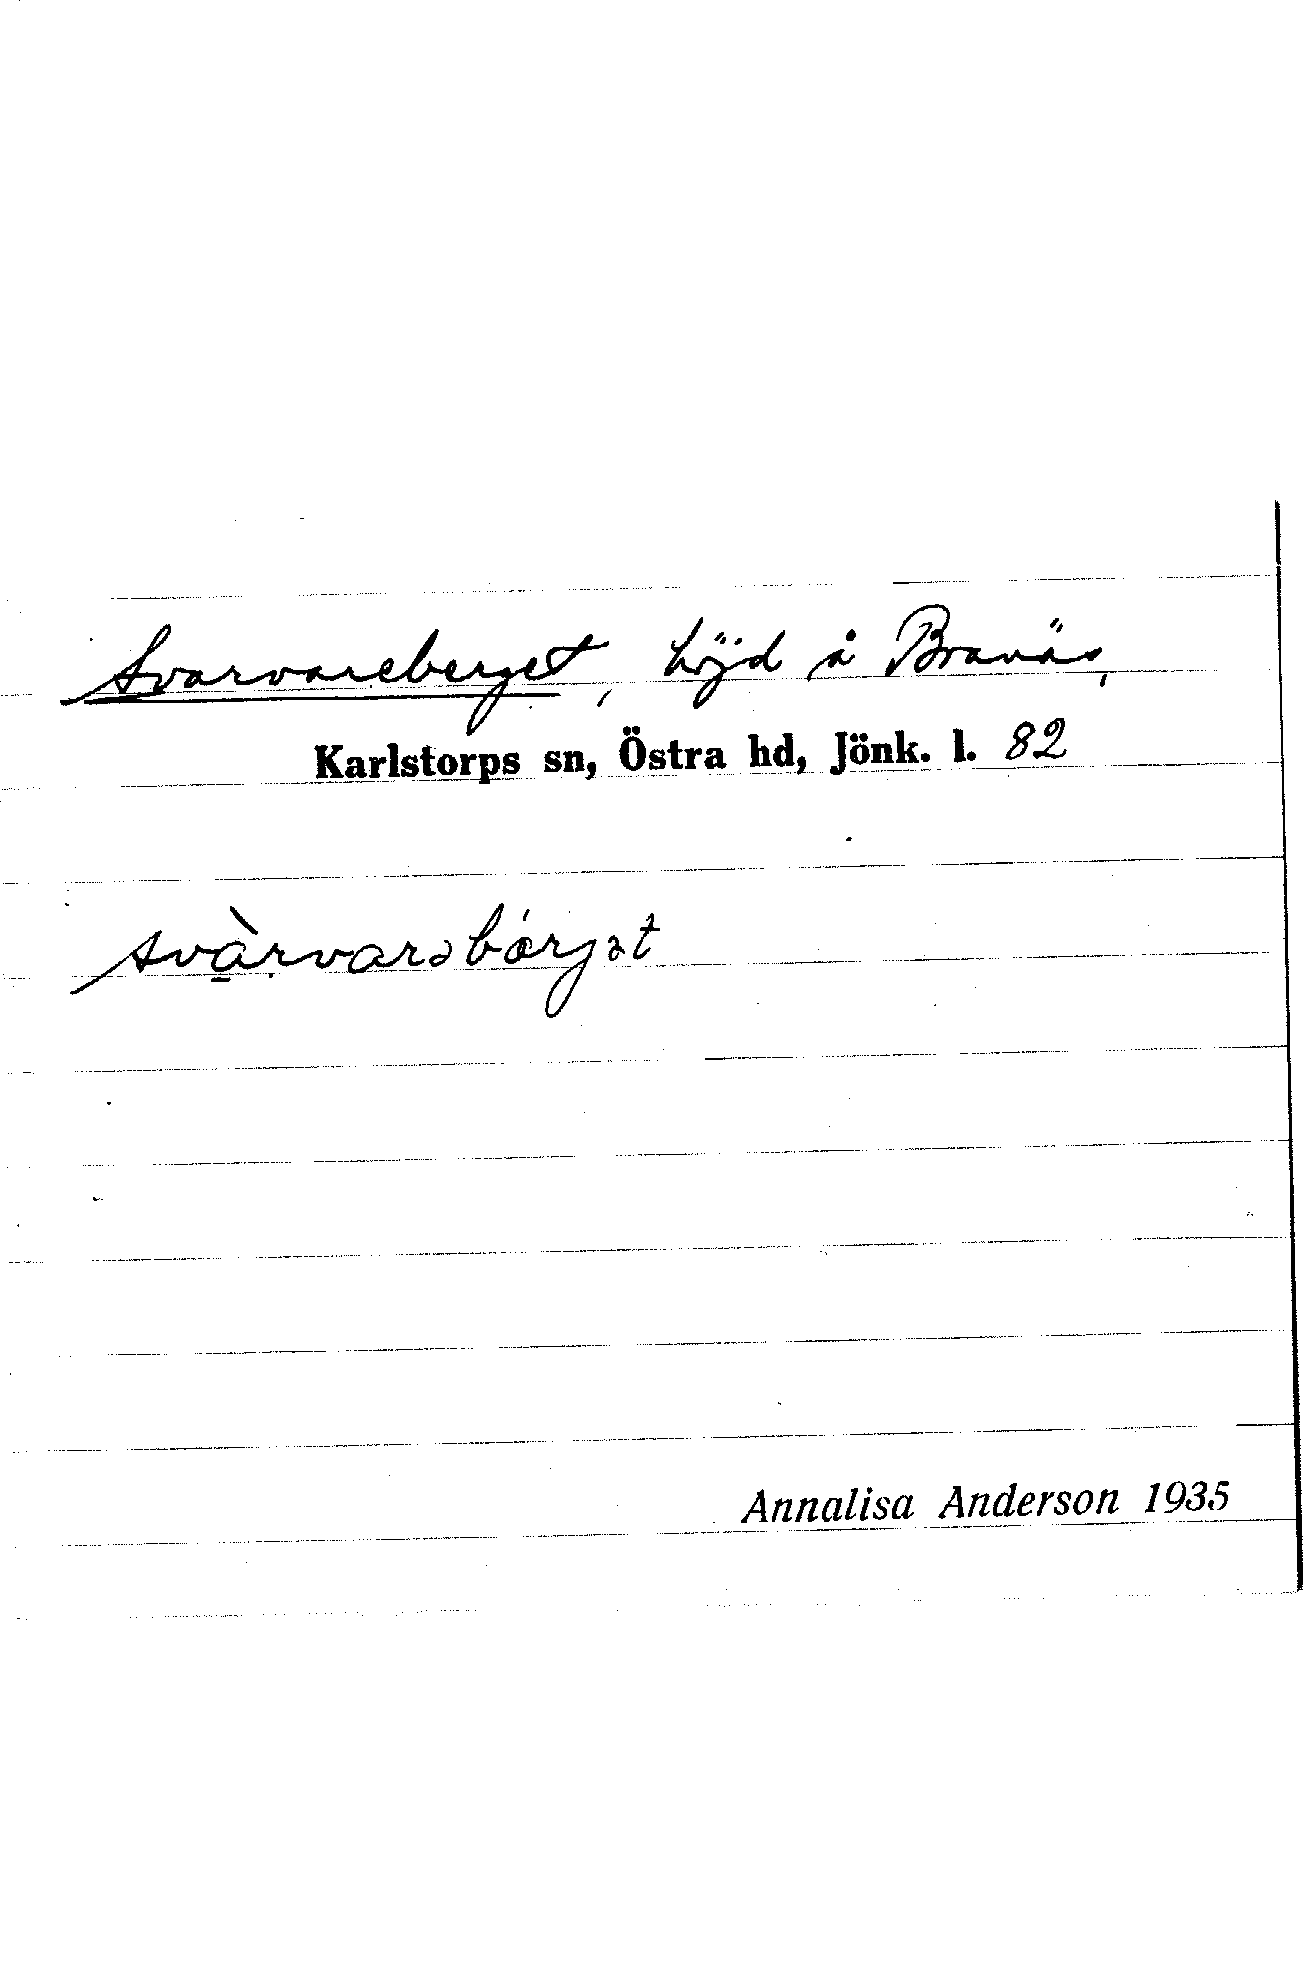 Svarvareberget, höjd å Branäs,
Karlstorps sn, Östra hd, Jönk. l. 82
svàrvarəbǿrjət
Annalisa Anderson 1935